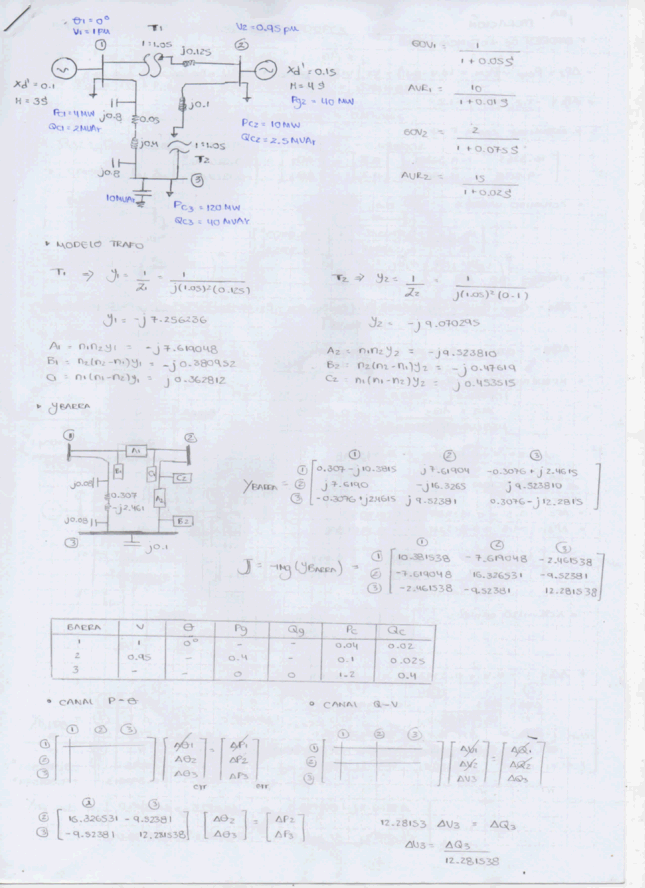 θ1 = 0°
V1 = 1 pu
T1
V2 = 0.95 pu
①
t=1.05
j0.125
②
Xd' = 0.1
H = 3 s
Xd' = 0.15
H = 4 s
Pg2 = 40 MW
PC1 = 4 MW
QC1 = 2 MVAr
j0.8
0.05
j0.4
j0.1
t=1.05
T2
PC2 = 10 MW
QC2 = 2.5 MVAr
j0.8
③
10 MVAr
PC3 = 120 MW
QC3 = 40 MVAr
GOV1 = 1 / 1 + 0.05S
AVR1 = 10 / 1 + 0.01S
GOV2 = 2 / 1 + 0.075S
AVR2 = 15 / 1 + 0.02S
MODELO TRAFO
T1 ⇒ y1 = 1/Z1 = 1 / j(1.05)²(0.125)
y1 = -j 7.256236
A1 = n1n2y1 = -j7.619048
B1 = n2(n2-n1)y1 = -j0.380952
C1 = n1(n1-n2)y1 = j0.362812
T2 ⇒ y2 = 1/Z2 = 1 / j(1.05)²(0.1)
y2 = -j9.070295
A2 = n1n2y2 = -j9.523810
B2 = n2(n2-n1)y2 = -j0.47619
C2 = n1(n1-n2)y2 = j0.453515
YBARRA
① ②
A1
B1
C1
C2
A2
B2
j0.08
0.307
-j2.461
j0.08
③
j0.1
① ② ③
YBARRA =
① 0.307-j10.3815 j7.61904 -0.3076+j2.4615
② j7.6190 -j16.3265 j9.523810
③ -0.3076+j2.4615 j9.52381 0.3076-j12.2815
① ② ③
J = -Img (YBARRA) =
① 10.381538 -7.619048 -2.461538
② -7.619048 16.326531 -9.52381
③ -2.461538 -9.52381 12.281538
BARRA V θ Pg Qg Pc Qc
1 1 0° - - 0.04 0.02
2 0.95 - 0.4 - 0.1 0.025
3 - - 0 0 1.2 0.4
CANAL P-θ
CANAL Q-V
① ② ③
① Δθ1 = ΔP1
② Δθ2 ΔP2
③ Δθ3 ΔP3
① ② ③
① ΔV1 = ΔQ1
② ΔV2 ΔQ2
③ ΔV3 ΔQ3
② ③
② 16.326531 -9.52381 Δθ2 = ΔP2
③ -9.52381 12.281538 Δθ3 ΔP3
12.28153 ΔV3 = ΔQ3
ΔV3 = ΔQ3 / 12.281538